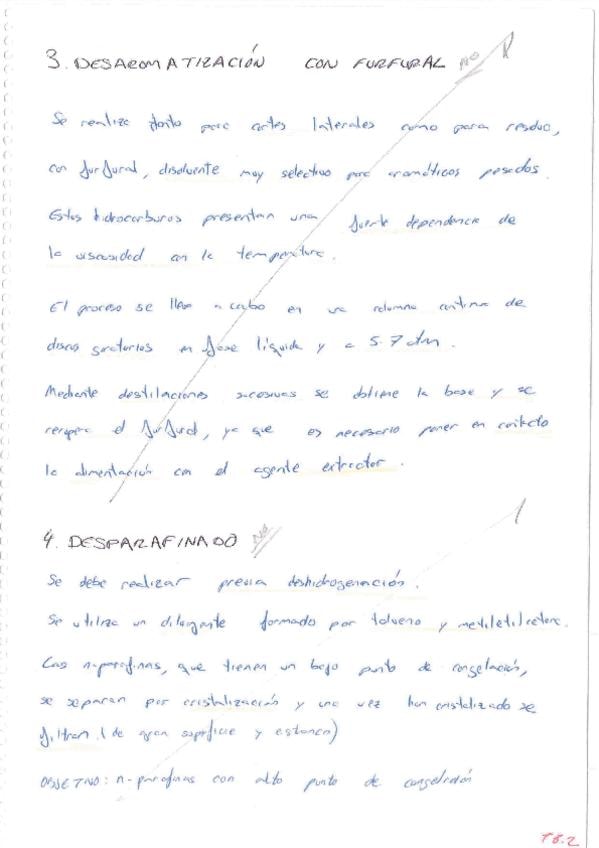 3. DESAROMATIZACIÓN CON FURFURAL NO
Se realiza tanto para cortes laterales como para residuo,
con furfural, disolvente muy selectivo para aromáticos pesados.
Estos hidrocarburos presentan una fuerte dependencia de
la viscosidad con la temperatura.
El proceso se lleva a cabo en una columna continua de
discos giratorios en fase líquida y a 5-7 atm.
Mediante destilaciones sucesivas se obtiene la base y se
recupera el furfural, ya que es necesario poner en contacto
la alimentación con el agente extractor.
4. DESPARAFINADO NO
Se debe realizar previa deshidrogenación.
Se utiliza un diluyente formado por tolueno y metiletilcetona.
Las n-parafinas, que tienen un bajo punto de congelación,
se separan por cristalización y una vez han cristalizado se
filtran (de gran superficie y estanco)
OBJETIVO: n-parafinas con alto punto de congelación
T8.2